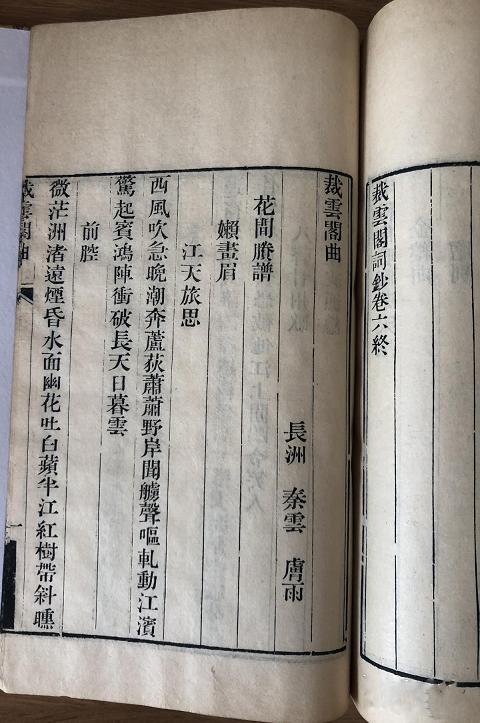 裁雲閣詞鈔卷六終
裁雲閣曲
長洲 秦雲 膚雨
花間賸譜
嬾畫眉
江天旅思
西風吹急晚潮奔蘆荻蕭蕭野岸聞艣聲嘔軋動江濱
驚起賓鴻陣衝破長天日暮雲
前腔
微茫洲渚遠煙昏水面幽花吐白蘋半江紅樹帶斜曛
裁雲閣曲
一